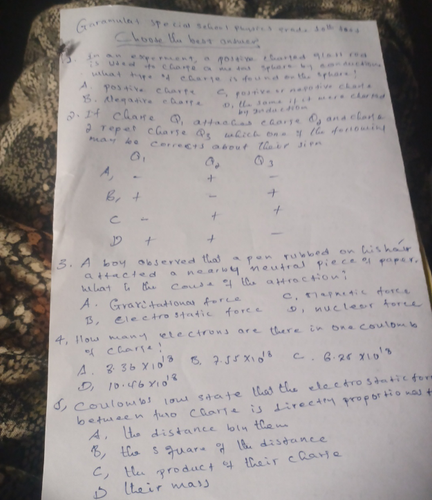 Garamuleta special school physics grade 10th test
Choose the best answer
1. In an experiment, a positive charged glass rod
is used to charge a metal sphere by conduction
what type of charge is found on the sphere?
A. positive charge C, positive or negative charge
B. Negative charge D, the same if it were charged
by induction
2. If charge Q1 attaches charge Q2 and charge
2 repel charge Q3 which one of the following
may be correct about their sign
Q1 Q2 Q3
A, - + -
B, + - +
C - + +
D + + -
3. A boy observed that a pen rubbed on his hair
attacted a nearby neutral piece of paper.
What is the cause of the attraction?
A. Gravitational force C, Magnetic force
B, Electrostatic force D, nuclear force
4, How many electrons are there in one coulomb
of charge?
A. 8.36 X10^18 B. 7.55X10^18 C. 6.25 X10^18
D, 10.46 X10^18
5, Coulombs law state that the electrostatic force
between two charge is directly proportional t
A, the distance b/n them
B, the square of the distance
C, the product of their charge
D their mass